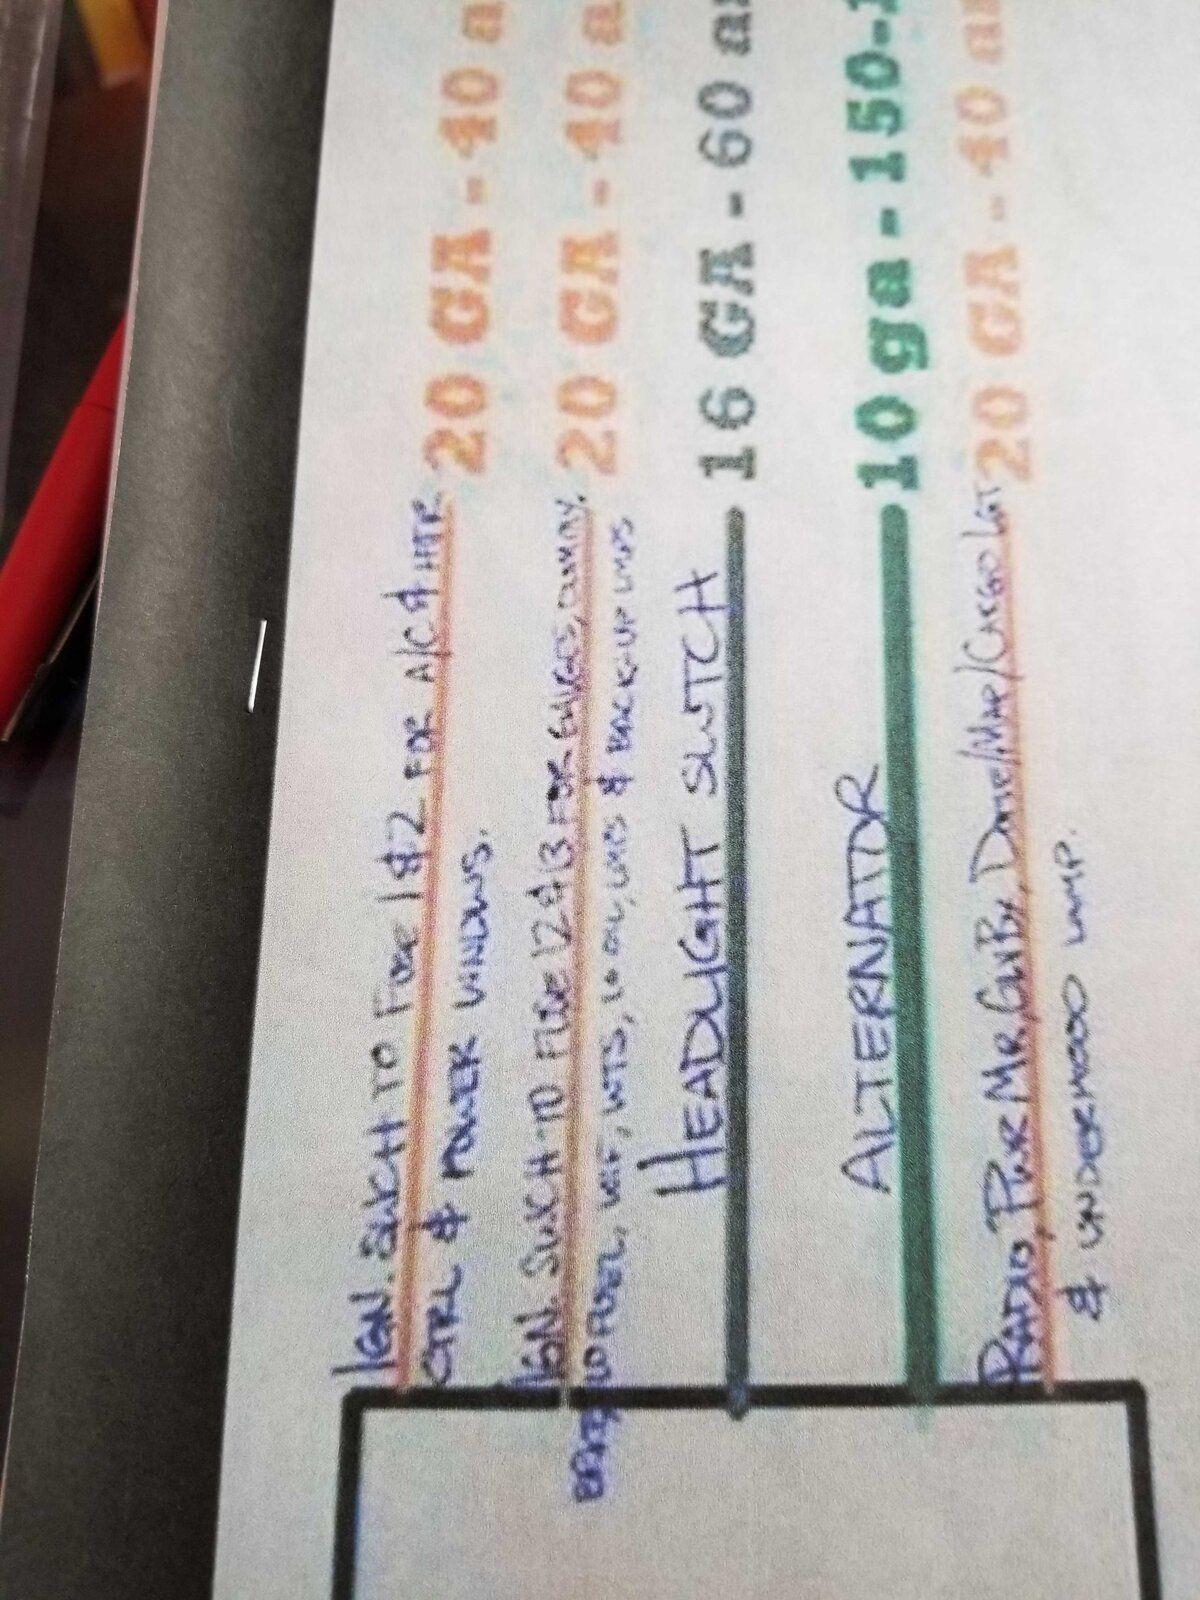 IGN. SWCH TO FUSE 1 & 2 FOR A/C & HTR.
20 GA - 40 a
CTRL & POWER WINDWS.
IGN. SWCH TO FUSE 12 & 13 FOR GAUGES,
20 GA - 40 a
LO FUEL, WTS, LO OIL, & BACK-UP LMPS
HEADLIGHT SWTCH
16 GA - 60 a
ALTERNATOR
10 ga - 150-
RADIO, PWR MR, GLV BX, DOME/MAP/CARGO LGT
20 GA - 40 a
& UNDERHOOD LAMP.